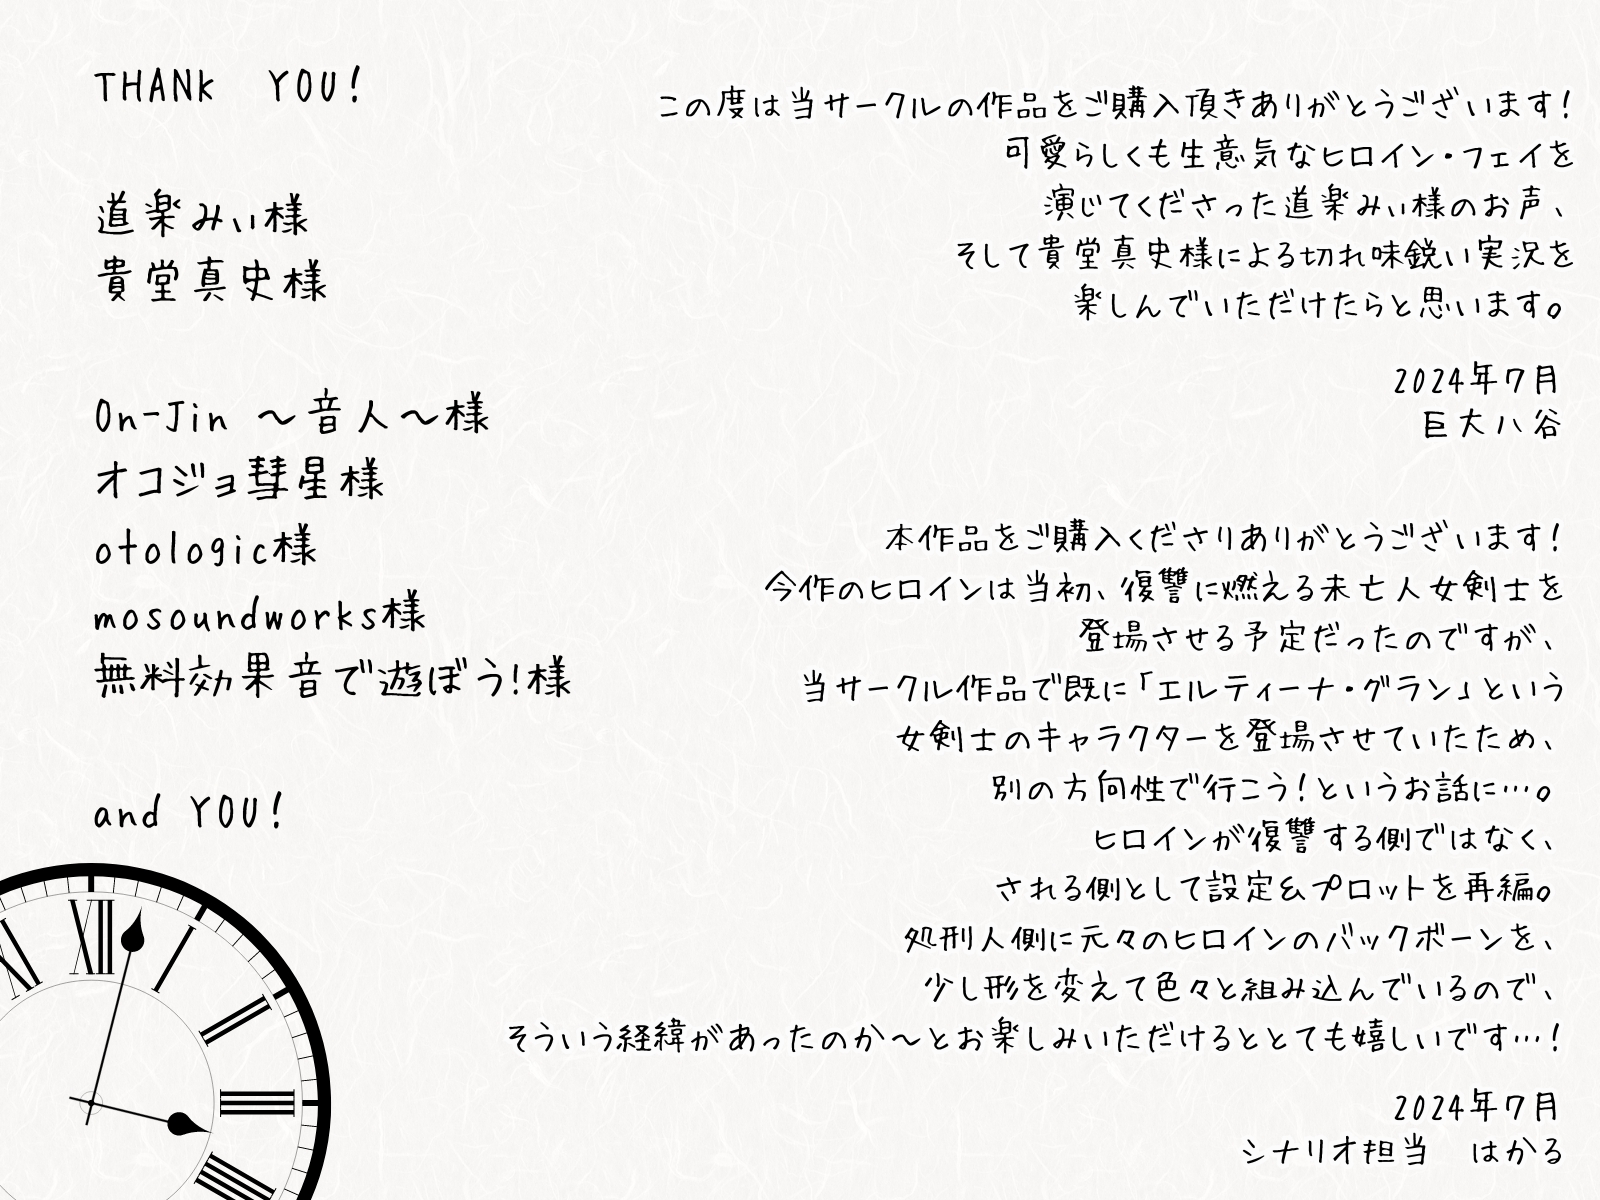 THANK YOU!
道楽みぃ様
貴堂真史様
On-Jin ～音人～様
オコジョ彗星様
otologic様
mosoundworks様
無料効果音で遊ぼう!様
and YOU!
この度は当サークルの作品をご購入頂きありがとうございます!
可愛らしくも生意気なヒロイン・フェイを
演じてくださった道楽みぃ様のお声、
そして貴堂真史様による切れ味鋭い実況を
楽しんでいただけたらと思います。
2024年7月
巨大ハ谷
本作品をご購入くださりありがとうございます!
今作のヒロインは当初、復讐に燃える未亡人女剣士を
登場させる予定だったのですが、
当サークル作品で既に「エルティーナ・グラン」という
女剣士のキャラクターを登場させていたため、
別の方向性で行こう!というお話に…。
ヒロインが復讐する側ではなく、
される側として設定&プロットを再編。
処刑人側に元々のヒロインのバックボーンを、
少し形を変えて色々と組み込んでいるので、
そういう経緯があったのか～とお楽しみいただけるととても嬉しいです…!
2024年7月
シナリオ担当 はかる
XII
I
II
III